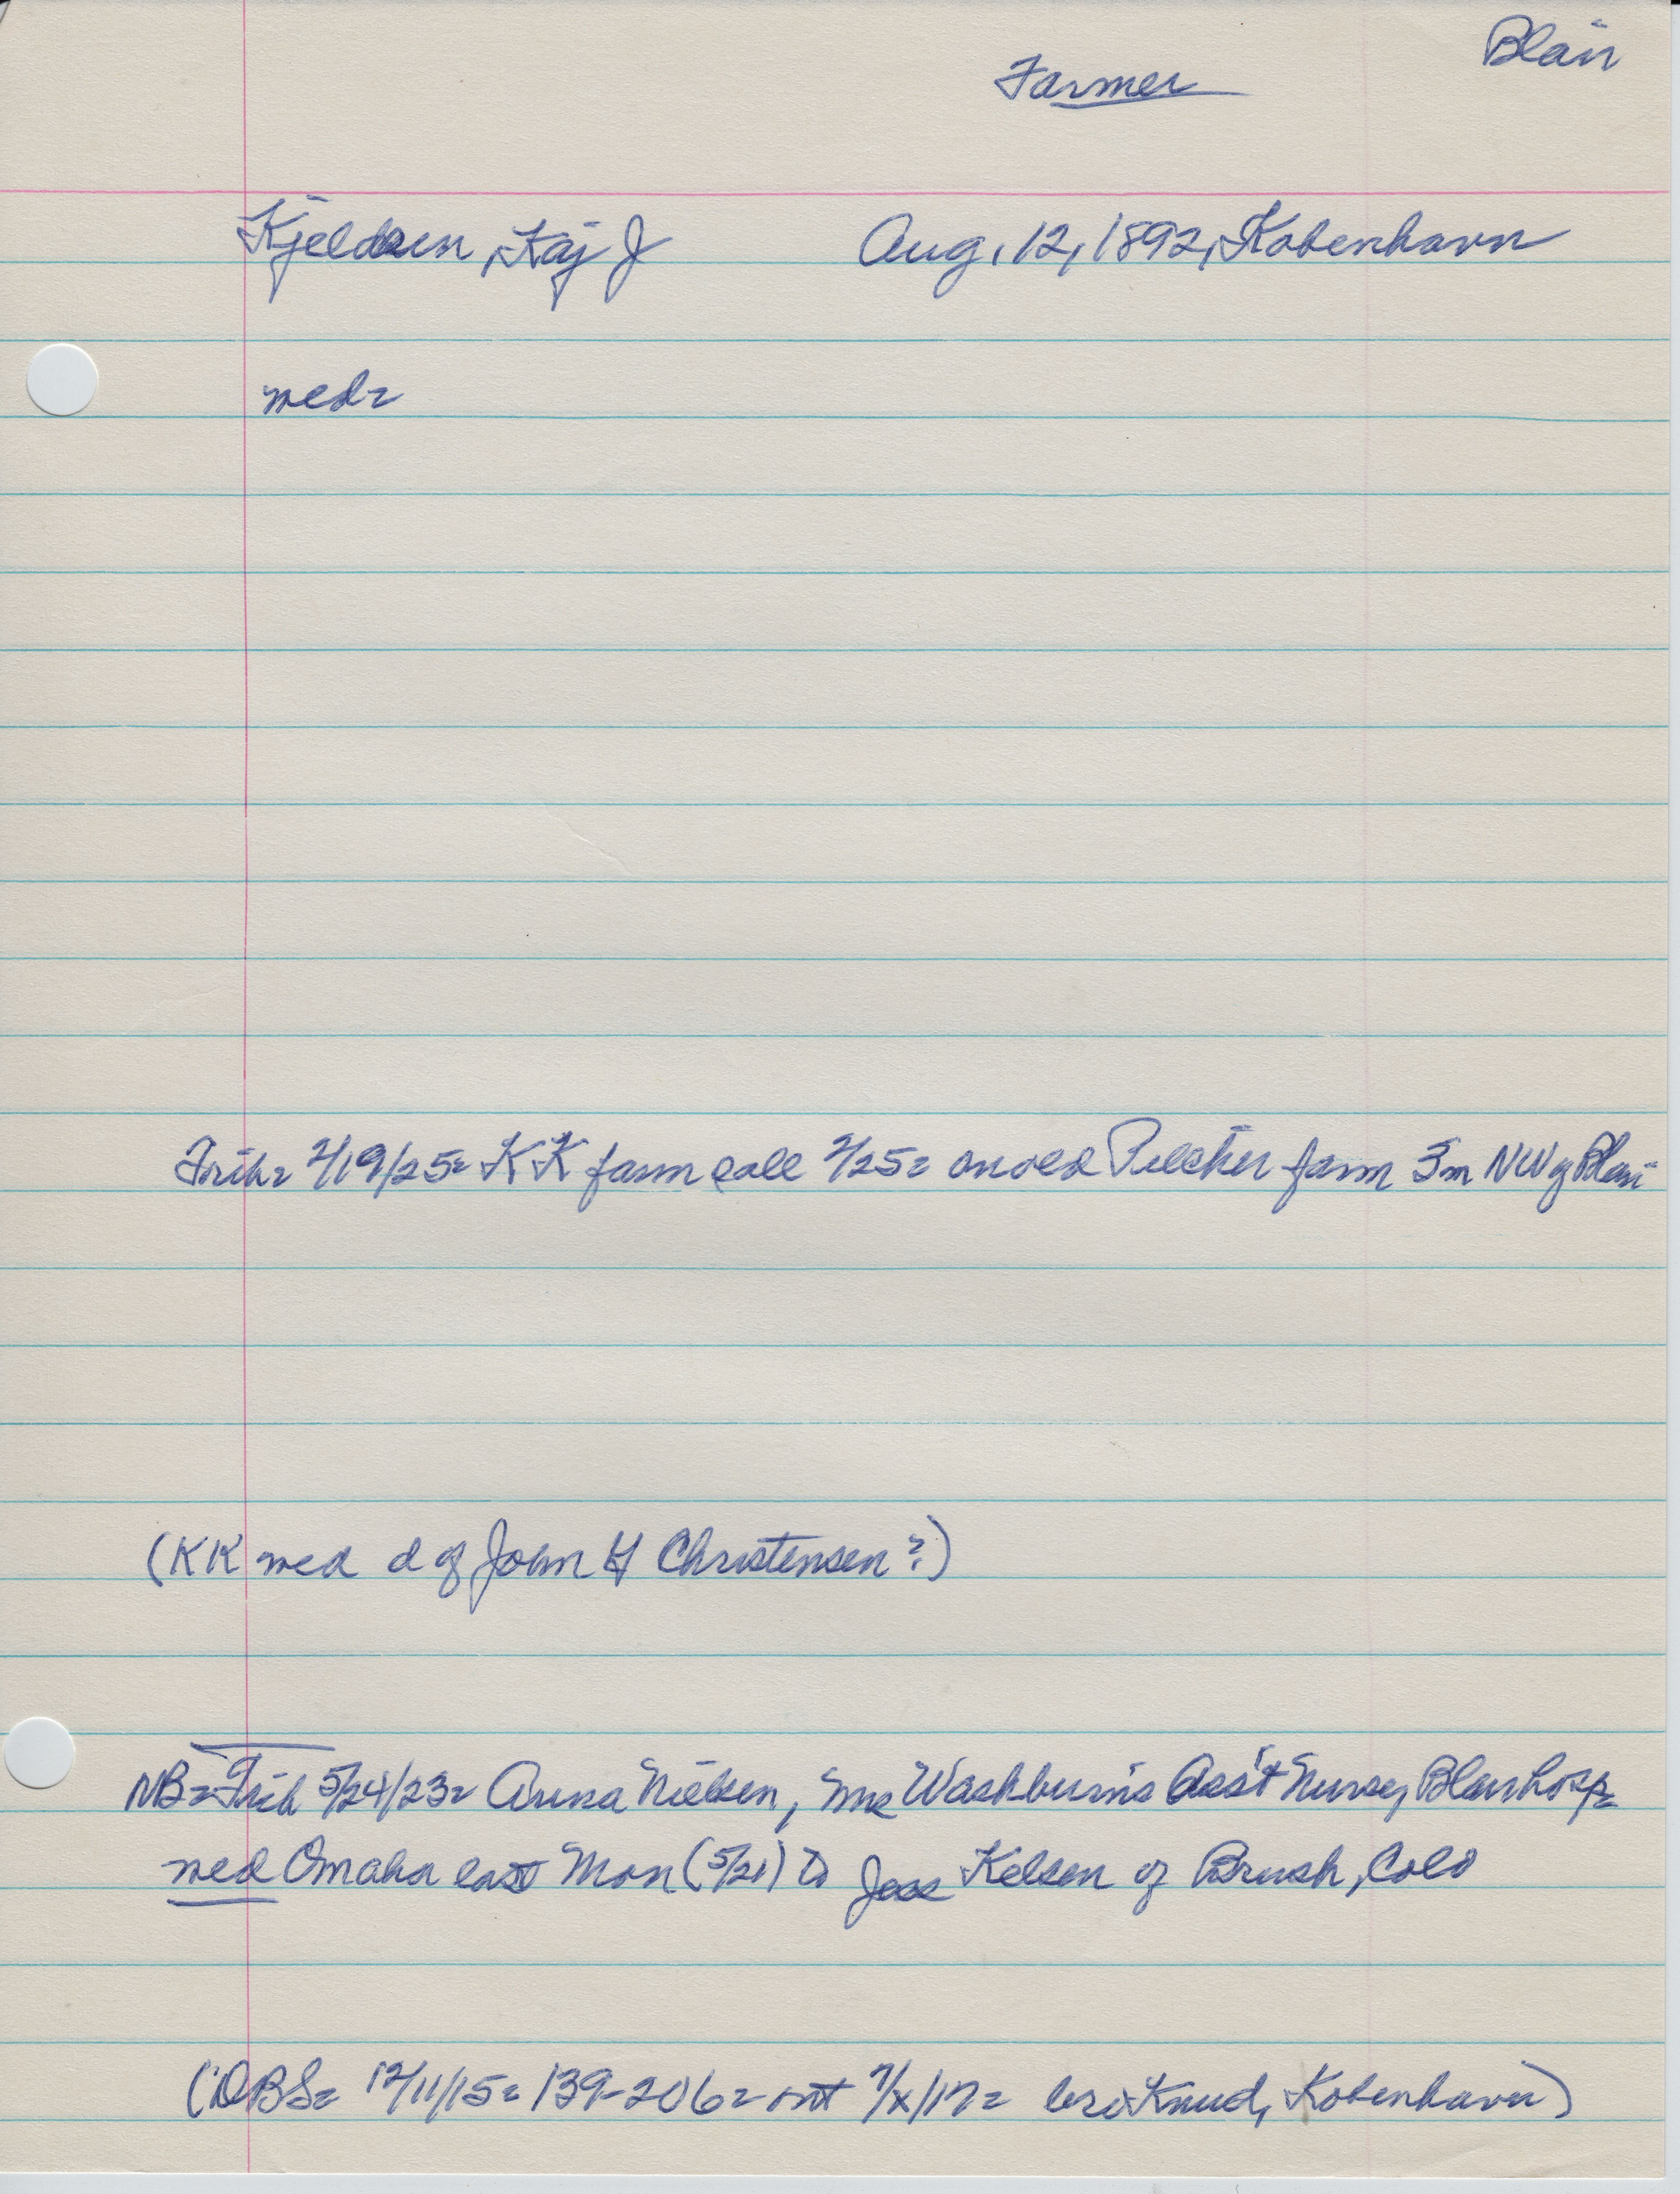 Blair
Farmer
Kjeldsen, Kaj J Aug, 12, 1892, Kobenhavn
med=
2/19/25= KK farm sale 2/25= on old Pilcher farm 3m NW of Blair
(KK med d of John H Christensen?)
NB= 5/24/23= Anna Nielsen, Washburn's Ass't Nurse, Blair hosp=
med Omaha last Mon (5/21) to Jess Kelsen of Brush, Colo
(DBS= 12/11/15= 139-206= 7/x/17= bro Knud, Kobenhavn)